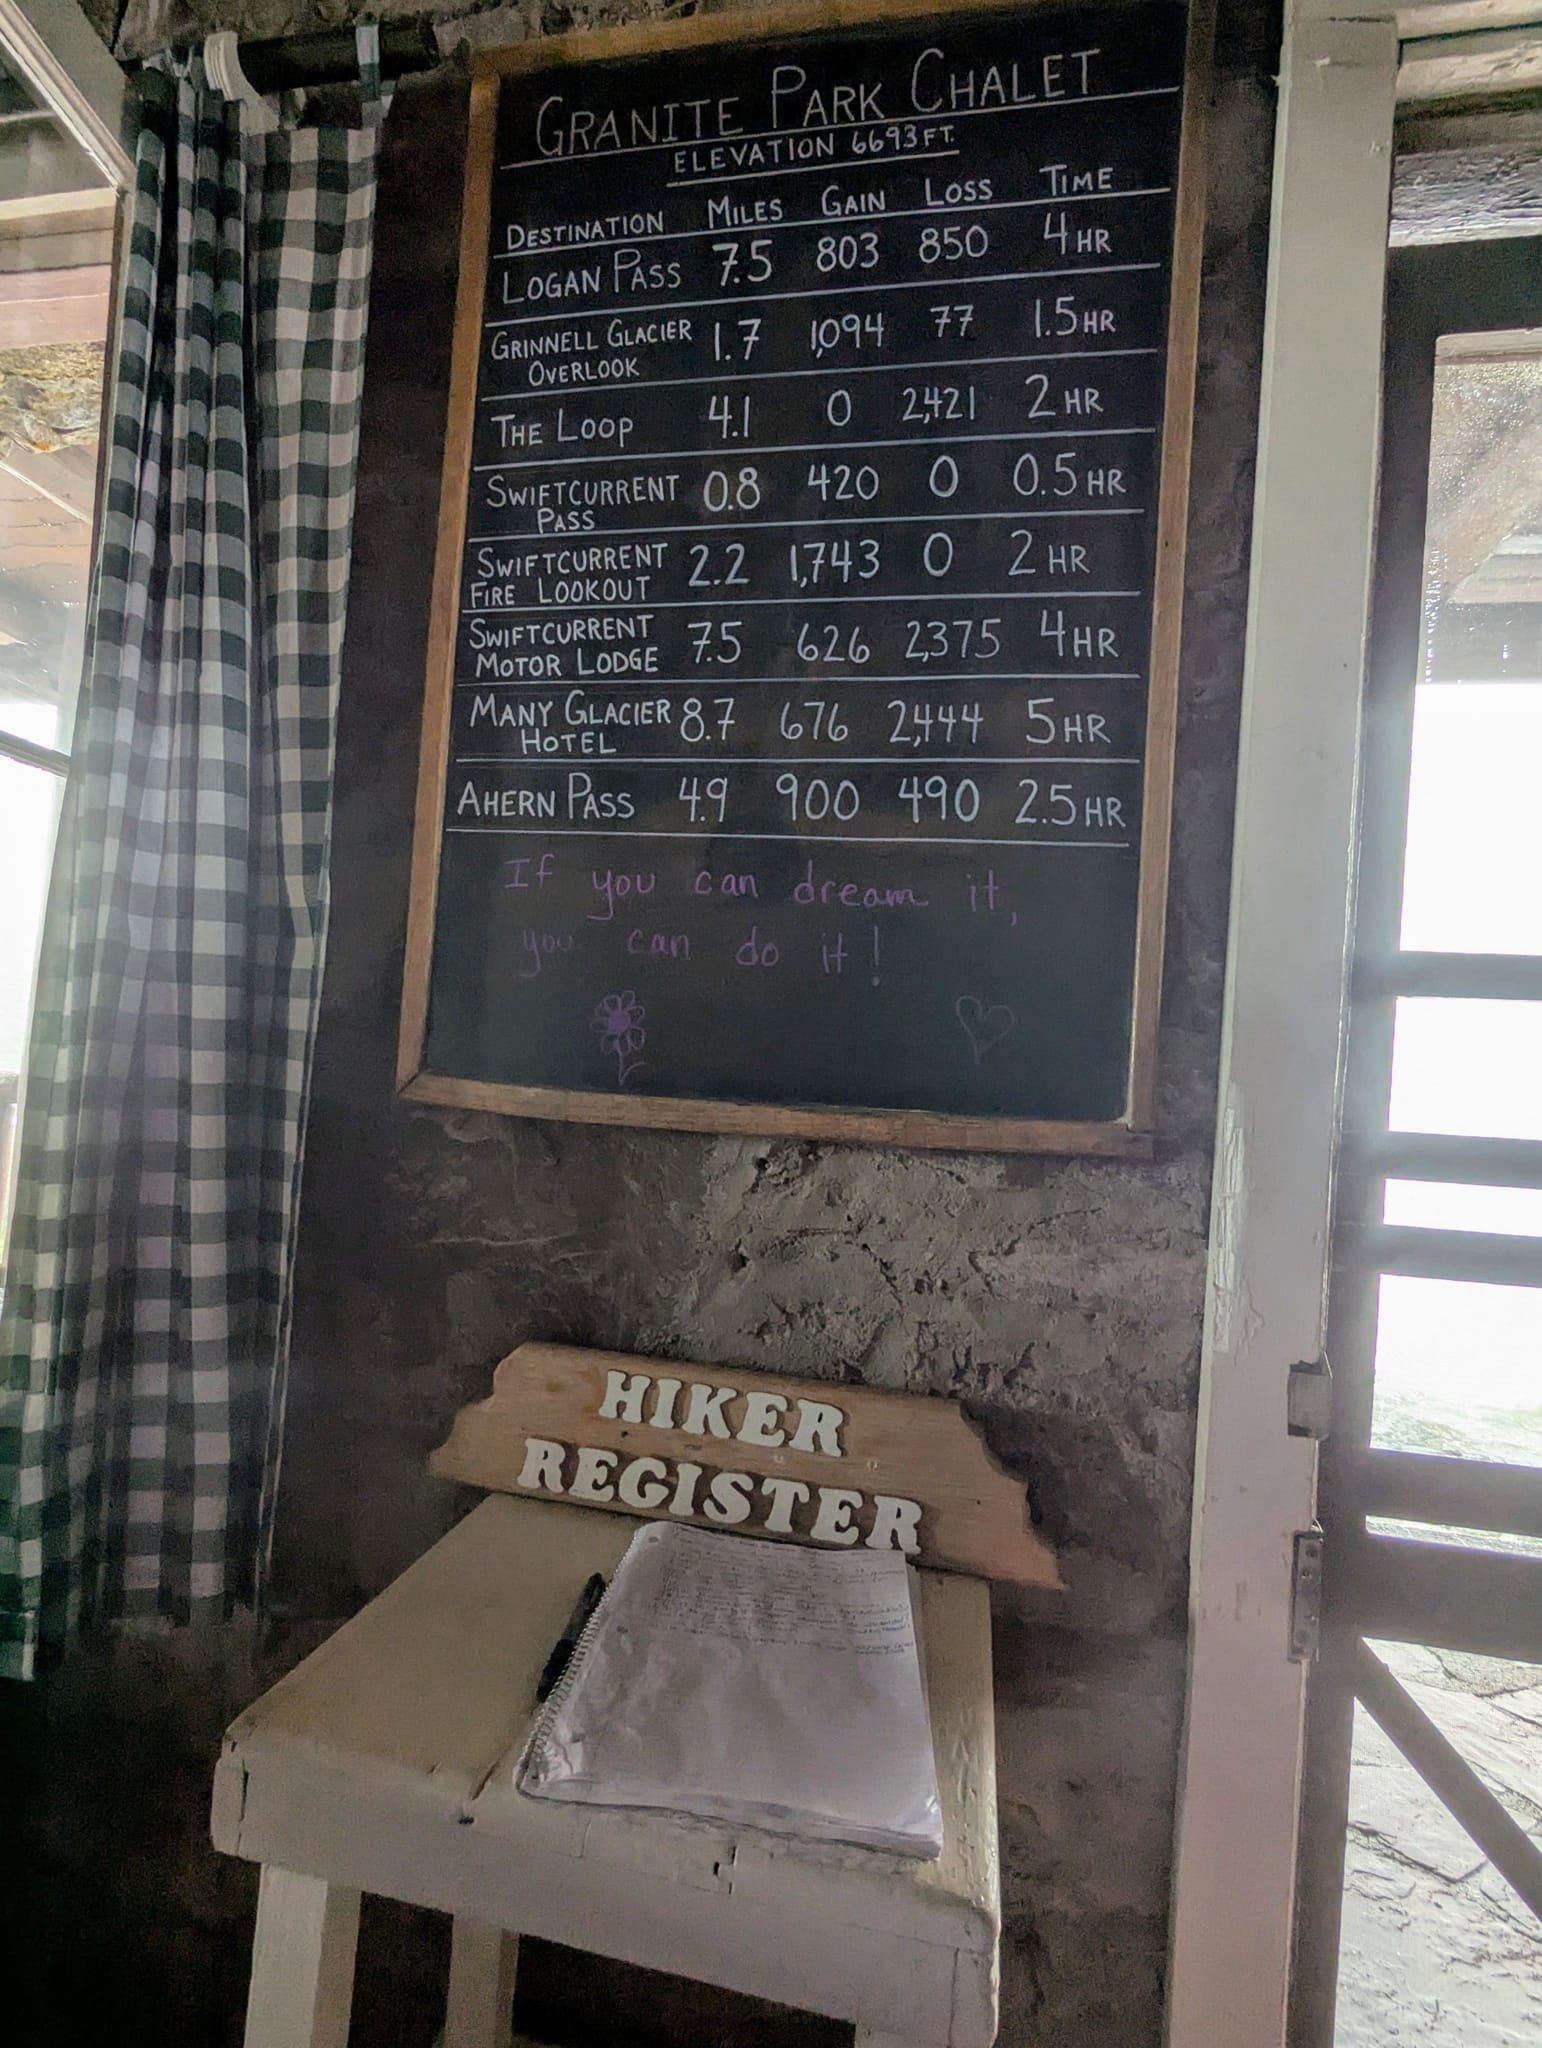 GRANITE PARK CHALET
ELEVATION 6693 FT.
DESTINATION MILES GAIN LOSS TIME
LOGAN PASS 7.5 803 850 4 HR
GRINNELL GLACIER OVERLOOK 1.7 1,094 77 1.5 HR
THE LOOP 4.1 0 2,421 2 HR
SWIFTCURRENT PASS 0.8 420 0 0.5 HR
SWIFTCURRENT FIRE LOOKOUT 2.2 1,743 0 2 HR
SWIFTCURRENT MOTOR LODGE 7.5 626 2,375 4 HR
MANY GLACIER HOTEL 8.7 676 2,444 5 HR
AHERN PASS 4.9 900 490 2.5 HR
If you can dream it,
you can do it!
HIKER
REGISTER